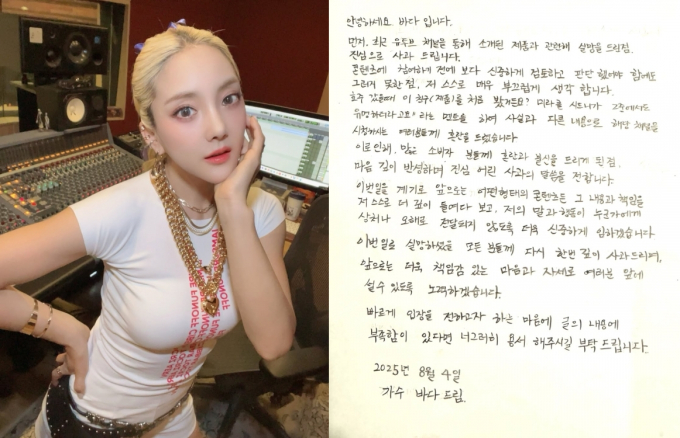 안녕하세요. 바다 입니다.
먼저, 최근 유튜브 채널을 통해 소개된 제품과 관련해 실망을 드린점.
진심으로 사과 드립니다.
콘텐츠에 참여하기 전에 보다 신중하게 검토하고 판단 했어야 함에도
그러지 못한 점, 저 스스로 매우 부끄럽게 생각 합니다.
호주 갔을때 이 친구(제품)를 처음 봤거든요? 미란다 시드니가 그곳에서도
유명하더라고요" 라는 멘트를 하여 사실과 다른 내용으로 해당 채널을
시청하시는 여러분들께 혼란을 드렸습니다
이로인해, 많은 소비자 분들께 혼란과 불신을 드리게 된점.
마음 깊이 반성하며 진심 어린 사과의 말씀을 전합니다.
이번일을 계기로 앞으로는 어떤형태의 콘텐츠든 그 내용과 책임을
저 스스로 더 깊이 들여다 보고, 저의 말과 행동이 누군가에게
상처나 오해로 전달되지 않도록 더욱 신중하게 임하겠습니다
이번일로 실망하셨을 모든 분들께 다시 한번 깊이 사과드리며,
앞으로는 더욱 책임감 있는 마음과 자세로 여러분 앞에
설수 있도록 노력하겠습니다.
빠르게 입장을 전하고자 하는 마음에 글의 내용에
부족함이 있다면 너그러히 용서 해주시길 부탁 드립니다.
2025년 8월 4일
가수 바다 드림.